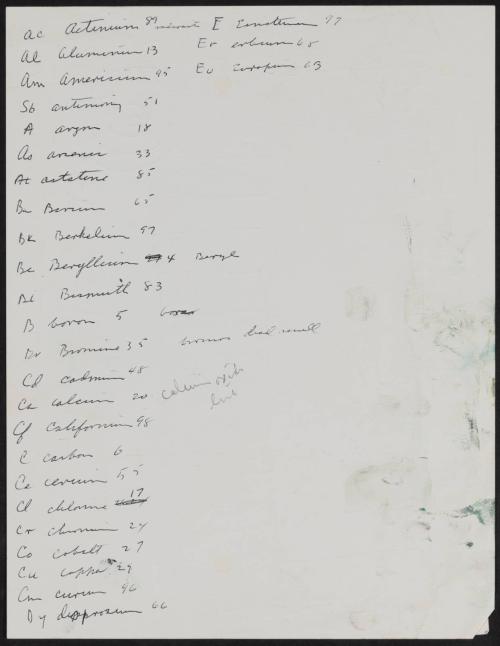 Ac Actinium 89 E Einsteinium 97
Al Aluminium 13 Er erbium 68
Am Americium 95 Eu europium 63
Sb antimony 51
A argon 18
As arsenic 33
At astatine 85
Ba Barium 65
Bk Berkelium 97
Be Beryllium 4 Beryl
Bi Bismuth 83
B boron 5 borax
Br Bromine 35 bromos bad smell
Cd cadmium 48
Ca calcium 20 calcium oxide
lime
Cf Californium 98
C carbon 6
Ce cerium 55
Cl chlorine 17
Cr chromium 24
Co cobalt 27
Cu copper 29
Cm curium 96
Dy disprosium 66